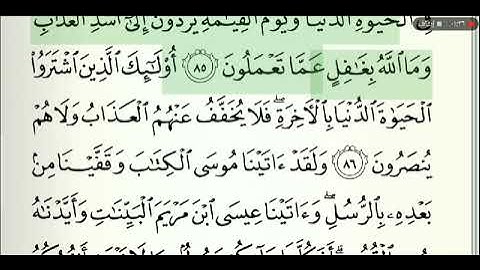 الْحَيَوٰةِ الدُّنْيَا وَيَوْمَ الْقِيَٰمَةِ يُرَدُّونَ إِلَىٰ أَشَدِّ الْعَذَابِ
وَمَا اللَّهُ بِغَٰفِلٍ عَمَّا تَعْمَلُونَ ٨٥ أُو۟لَٰٓئِكَ الَّذِينَ اشْتَرَوُا۟
الْحَيَوٰةَ الدُّنْيَا بِالْأَخِرَةِ ۖ فَلَا يُخَفَّفُ عَنْهُمُ الْعَذَابُ وَلَا هُمْ
يُنصَرُونَ ٨٦ وَلَقَدْ ءَاتَيْنَا مُوسَى الْكِتَٰبَ وَقَفَّيْنَا مِنۢ
بَعْدِهِۦ بِالرُّسُلِ ۖ وَءَاتَيْنَا عِيسَى ابْنَ مَرْيَمَ الْبَيِّنَٰتِ وَأَيَّدْنَٰهُ